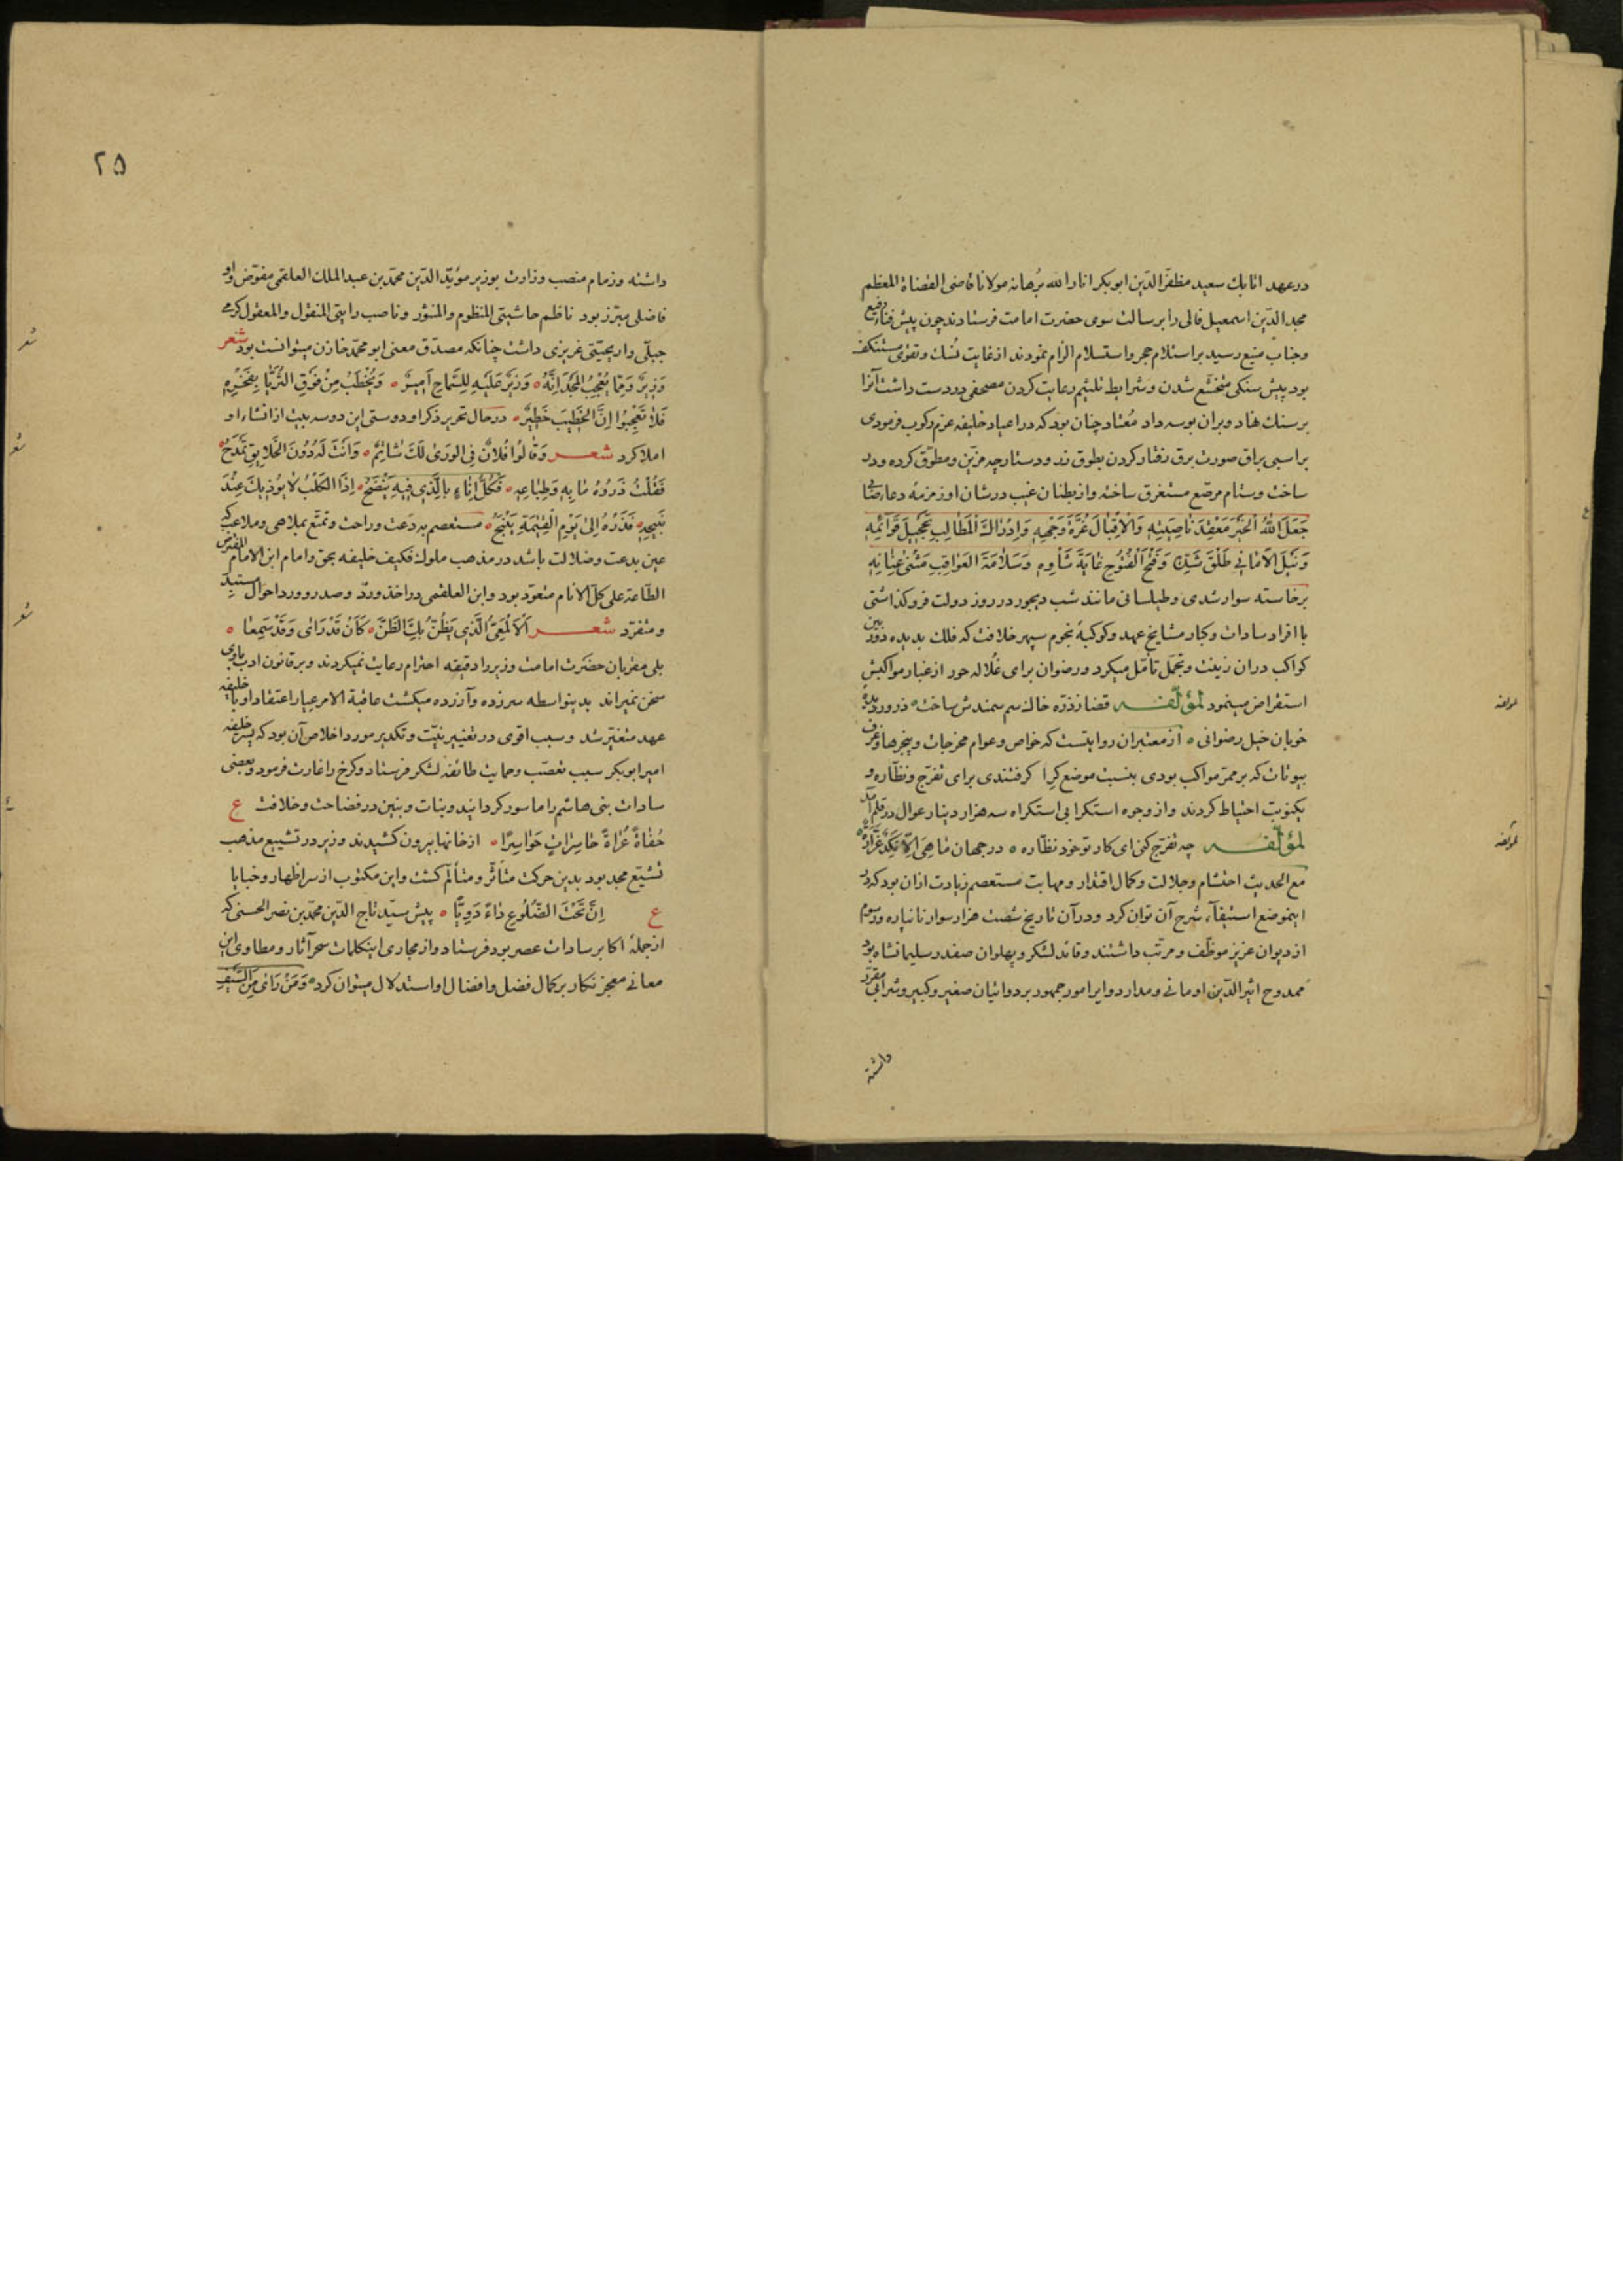 در عهد اتابك سعید مظفر الدین ابوبکر انار الله برهانه مولانا قاضی القضاة المعظم
مجد الدین اسمعیل فالی را برسالت سوی حضرت امامت فرستادند چون پیش فناء رفیع
و جناب منیع رسید بر استلام حجر و استسلام الزام نمودند از غایت نُسك و تقوی مستنکف
بود پیش سنکی متخشّع شدن و شرایط تلثیم رعایت کردن مصحفی در دست داشت آنرا
بر سنك نهاد و بران بوسه داد مُعتاد چنان بود که در اعیاد خلیفه عزم رکوب فرمودی
بر اسبی براق صورت برق رفتار کردن بطوق زر و دستارچه مزیّن و مطوّق کرده و در
ساخت و ستام مرصّع مستغرق ساخته و از بطنان غیب در شان او زمزمهٔ دعاء رضا
جَعَلَ اللهُ الْخَیْرَ مَعْقِدَ نَاصِیَتِهِ وَالْاِقْبَالَ غُرَّةَ وَجْهِهِ وَاِدْرَاكَ الْمَطَالِبِ تَحْجِیلَ قَوَآئِمِهِ
وَنَیْلَ الْاَمَانِی طَلْقَ شَدِّهِ وَفَتْحَ الْفُتُوحِ غَایَةَ شَأْوِهِ وَسَلَامَةَ الْعَوَاقِبِ مَثْنَی عِنَانِهِ
برخاسته سوار شدی و طیلسانی مانند شب دیجور در روز دولت فروکذاشتی
با افراد سادات و کبار مشایخ عهد و کوکبهٔ نجوم سپهر خلافت که فلك بدیده دوربین
کواکب دران زینت و تجمّل تأمّل میکرد و رضوان برای غُلاله حور از غبار مواکبش
استقراض مینمود لمؤلّفه قضا ز ذرّه خاك سم سمندش ساخت ذرور دیده
خوبان خیل رضوانی از معتبران روایتست که خواص و عوام مخرجات و پنجرها و غرف
بیوتات که بر ممرّ مواکب بودی بنسبت موضع کِرا کرفتندی برای تفرّج و نظّاره و
یکنوبت احتیاط کردند و از وجوه استکرا بی استکراه سه هزار دینار عوال در قلم آمد
لمؤلّفه چه تفرّج کنی ای کار تو خود نظّاره در جهان مَا هِیَ اِلّا نَکَدٌ غَرَّارَه
مع الحدیث احتشام و جلالت و کمال اقتدار و مهابت مستعصم زیادت ازان بود که در
اینموضع استیفآء شرح آن توان کرد و در آن تاریخ شصت هزار سوار نانپاره و رسوم
از دیوان عزیز موظّف و مرتّب داشتند و قائد لشکر و پهلوان صفدر سلیمانشاه بود
ممدوح اثیر الدّین اومانی و مدار دوایر امور جمهور بر دواتیان صغیر و کبیر و شرابی مقرّر
داشته
۲۵
داشته و زمام منصب وزارت بوزیر مؤیّد الدّین محمّد بن عبد الملك العلقمی مفوّض و او
فاضلی مبرّز بود ناظم حاشیتی المنظوم والمنثور و ناصب رایتی المنقول والمعقول کرمی
جبلّی و اریحیّتی غریزی داشت چنانکه مصدّق معنی ابو محمّد خازن میتوانست بود شعر
وَزِیرٌ وَمِمَّا یُعْجِبُ الْمَجْدَ اِنَّهُ وَزِیرٌ عَلَیْهِ لِلسَّمَاحِ اَمِیرٌ وَیُخْطَبُ مِنْ فَوْقِ الثُّرَیَّا بِفَخْرِهِ
فَلَا تَعْجَبُوا اِنَّ الْخَطِیبَ خَطِیرٌ در حال تحریر ذکر او دوستی این دو سه بیت از انشاء او
املا کرد شعر وَقَالُوا فُلَانٌ فِی الوَرَیٰ لَكَ شَاتِمٌ وَاَنْتَ لَهُ دُونَ الْخَلَایِقِ تَمْدَحُ
فَقُلْتُ ذَرُوهُ مَا بِهِ وَطِبَاعِهِ فَکُلُّ اِنَاءٍ بِالَّذِی فِیهِ یَنْضَحُ اِذَا الْکَلْبُ لَا یُؤْذِیكَ عِنْدَ
نَبِیحِهِ فَذَرْهُ اِلَیٰ یَوْمِ الْقِیٰمَةِ یَنْبَحُ مستعصم بر دعت و راحت و تمتّع بملاهی و ملاعب که
عین بدعت و ضلالت باشد در مذهب ملوك فکیف خلیفه بحق و امام ابن الامام المفترض
الطّاعة علی کلّ الانام متعوّد بود و ابن العلقمی در اخذ و ردّ و صدر و ورد احوال مستبدّ
و متفرّد شعر اَلْاَلْمَعِیُّ الَّذِی یَظُنُّ بِكَ الظَّنَّ کَاَنْ قَدْ رَاَی وَقَدْ سَمِعَا
بلی مقربان حضرت امامت وزیر را دقیقه احترام رعایت نمیکردند و بر قانون ادب با وی
سخن نمیراند بدینواسطه سرزده و آزرده میکشت عاقبة الامر عیار اعتقاد او با خلیفه
عهد متغیّر شد و سبب اقوی در تغییر نیّت و تکدیر مورد اخلاص آن بود که پسر خلیفه
امیر ابوبکر سبب تعصّب و حمایت طائفه لشکر فرستاد و کرخ را غارت فرمود و بعضی
سادات بنی هاشم را ماسور کردانید و بنات و بنین در فضاحت و خلافت ع
حُفَاةً عُرَاةً حَاسِرَاتٍ خَوَاسِرًا از خانها بیرون کشیدند وزیر در تشییع مذهب
تشیّع مجد بود بدین حرکت متأثّر و متألّم کشت و این مکتوب از سر اظهار و خبایا
ع اِنَّ تَحْتَ الضُّلُوعِ دَاءً دَوِیًّا پیش سیّد تاج الدّین محمّد بن نصر الحسنی که
از جملهٔ اکابر سادات عصر بود فرستاد و از مجاری اینکلمات سحر آثار و مطاوی این
معانی معجز نکار بر کمال فضل و افضال او استدلال میتوان کرد وَمَنْ رَاَی مِنَ السَّیْفِ
شعر
شعر
شعر
ع
لمؤلفه
لمؤلفه